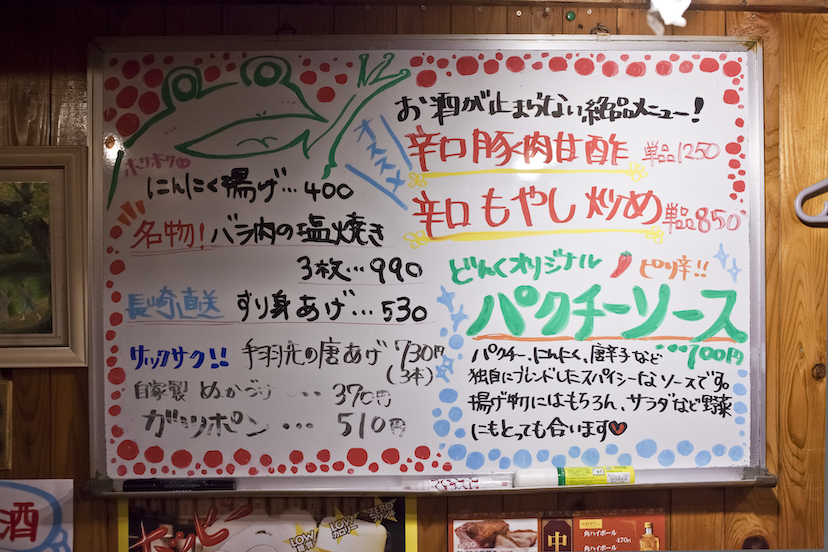 ホクホク♡
にんにく揚げ…400
名物!バラ肉の塩焼き
3枚…990
長崎直送 すり身あげ…530
サックサク!! 手羽先の唐あげ 730円
(3本)
自家製 ぬかづけ … 370円
ガツポン … 510円
オススメ
お酒が止まらない絶品メニュー!
辛口豚肉甘酢 単品1250
辛口もやし炒め 単品850
どんくオリジナル ピリ辛!!
パクチーソース
…100円
パクチー、にんにく、唐辛子など
独自にブレンドしたスパイシーなソースです。
揚げ物にはもちろん、サラダなど野菜
にもとっても合います♥
酒
ホッピー
LOW
LOW
カロリー
ZERO
プリン
中
角ハイボール
470円
角ハイボール